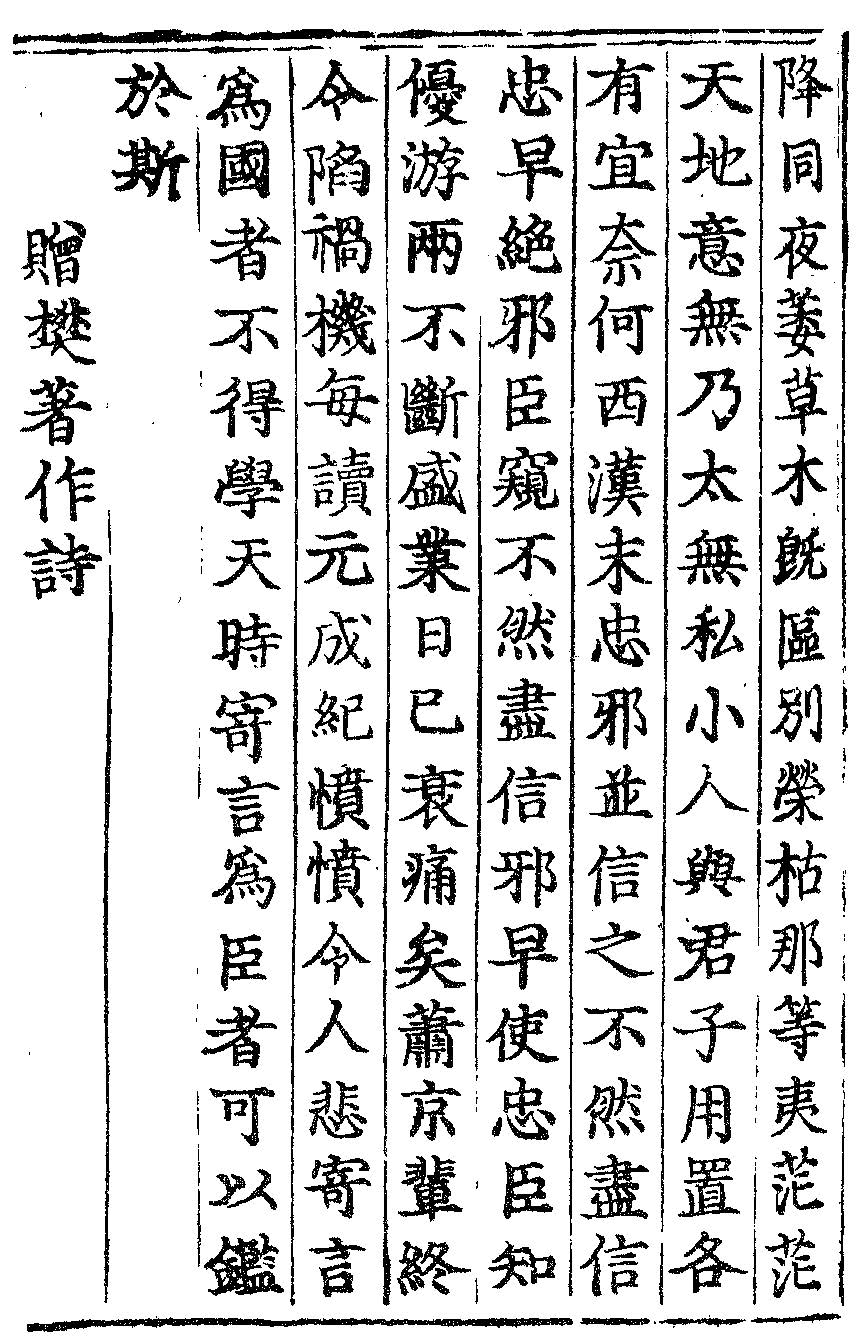 降同夜萎草木旣區別榮枯那等夷茫茫
天地意無乃太無私小人與君子用置各
有宜奈何西漢末忠邪並信之不然盡信
忠早絕邪臣窺不然盡信邪早使忠臣知
優游兩不斷盛業日已衰痛矣蕭京輩終
令陷禍機每讀元成紀憤憤令人悲寄言
爲國者不得學天時寄言爲臣者可以鑑
於斯
贈樊著作詩